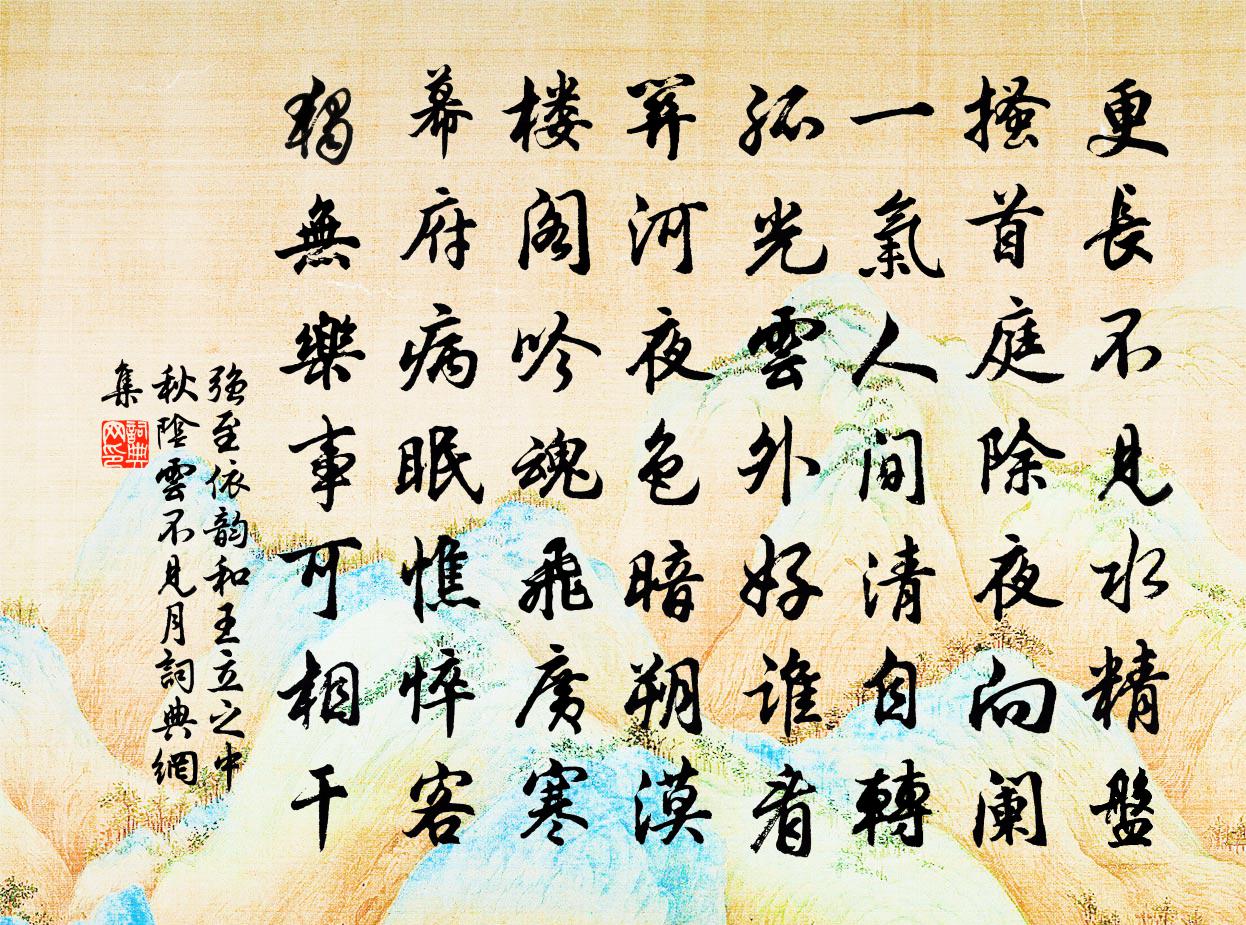 更長不見水精盤
搔首庭除夜向阑
一氣人間清自轉
孤光雲外好谁看
關河夜色暗朔漠
楼阁吟魂飛廣寒
幕府病眠憔悴客
獨無樂事可相干
强至依韵和王立之中
秋陰雲不見月詞典網
集
詞典網印